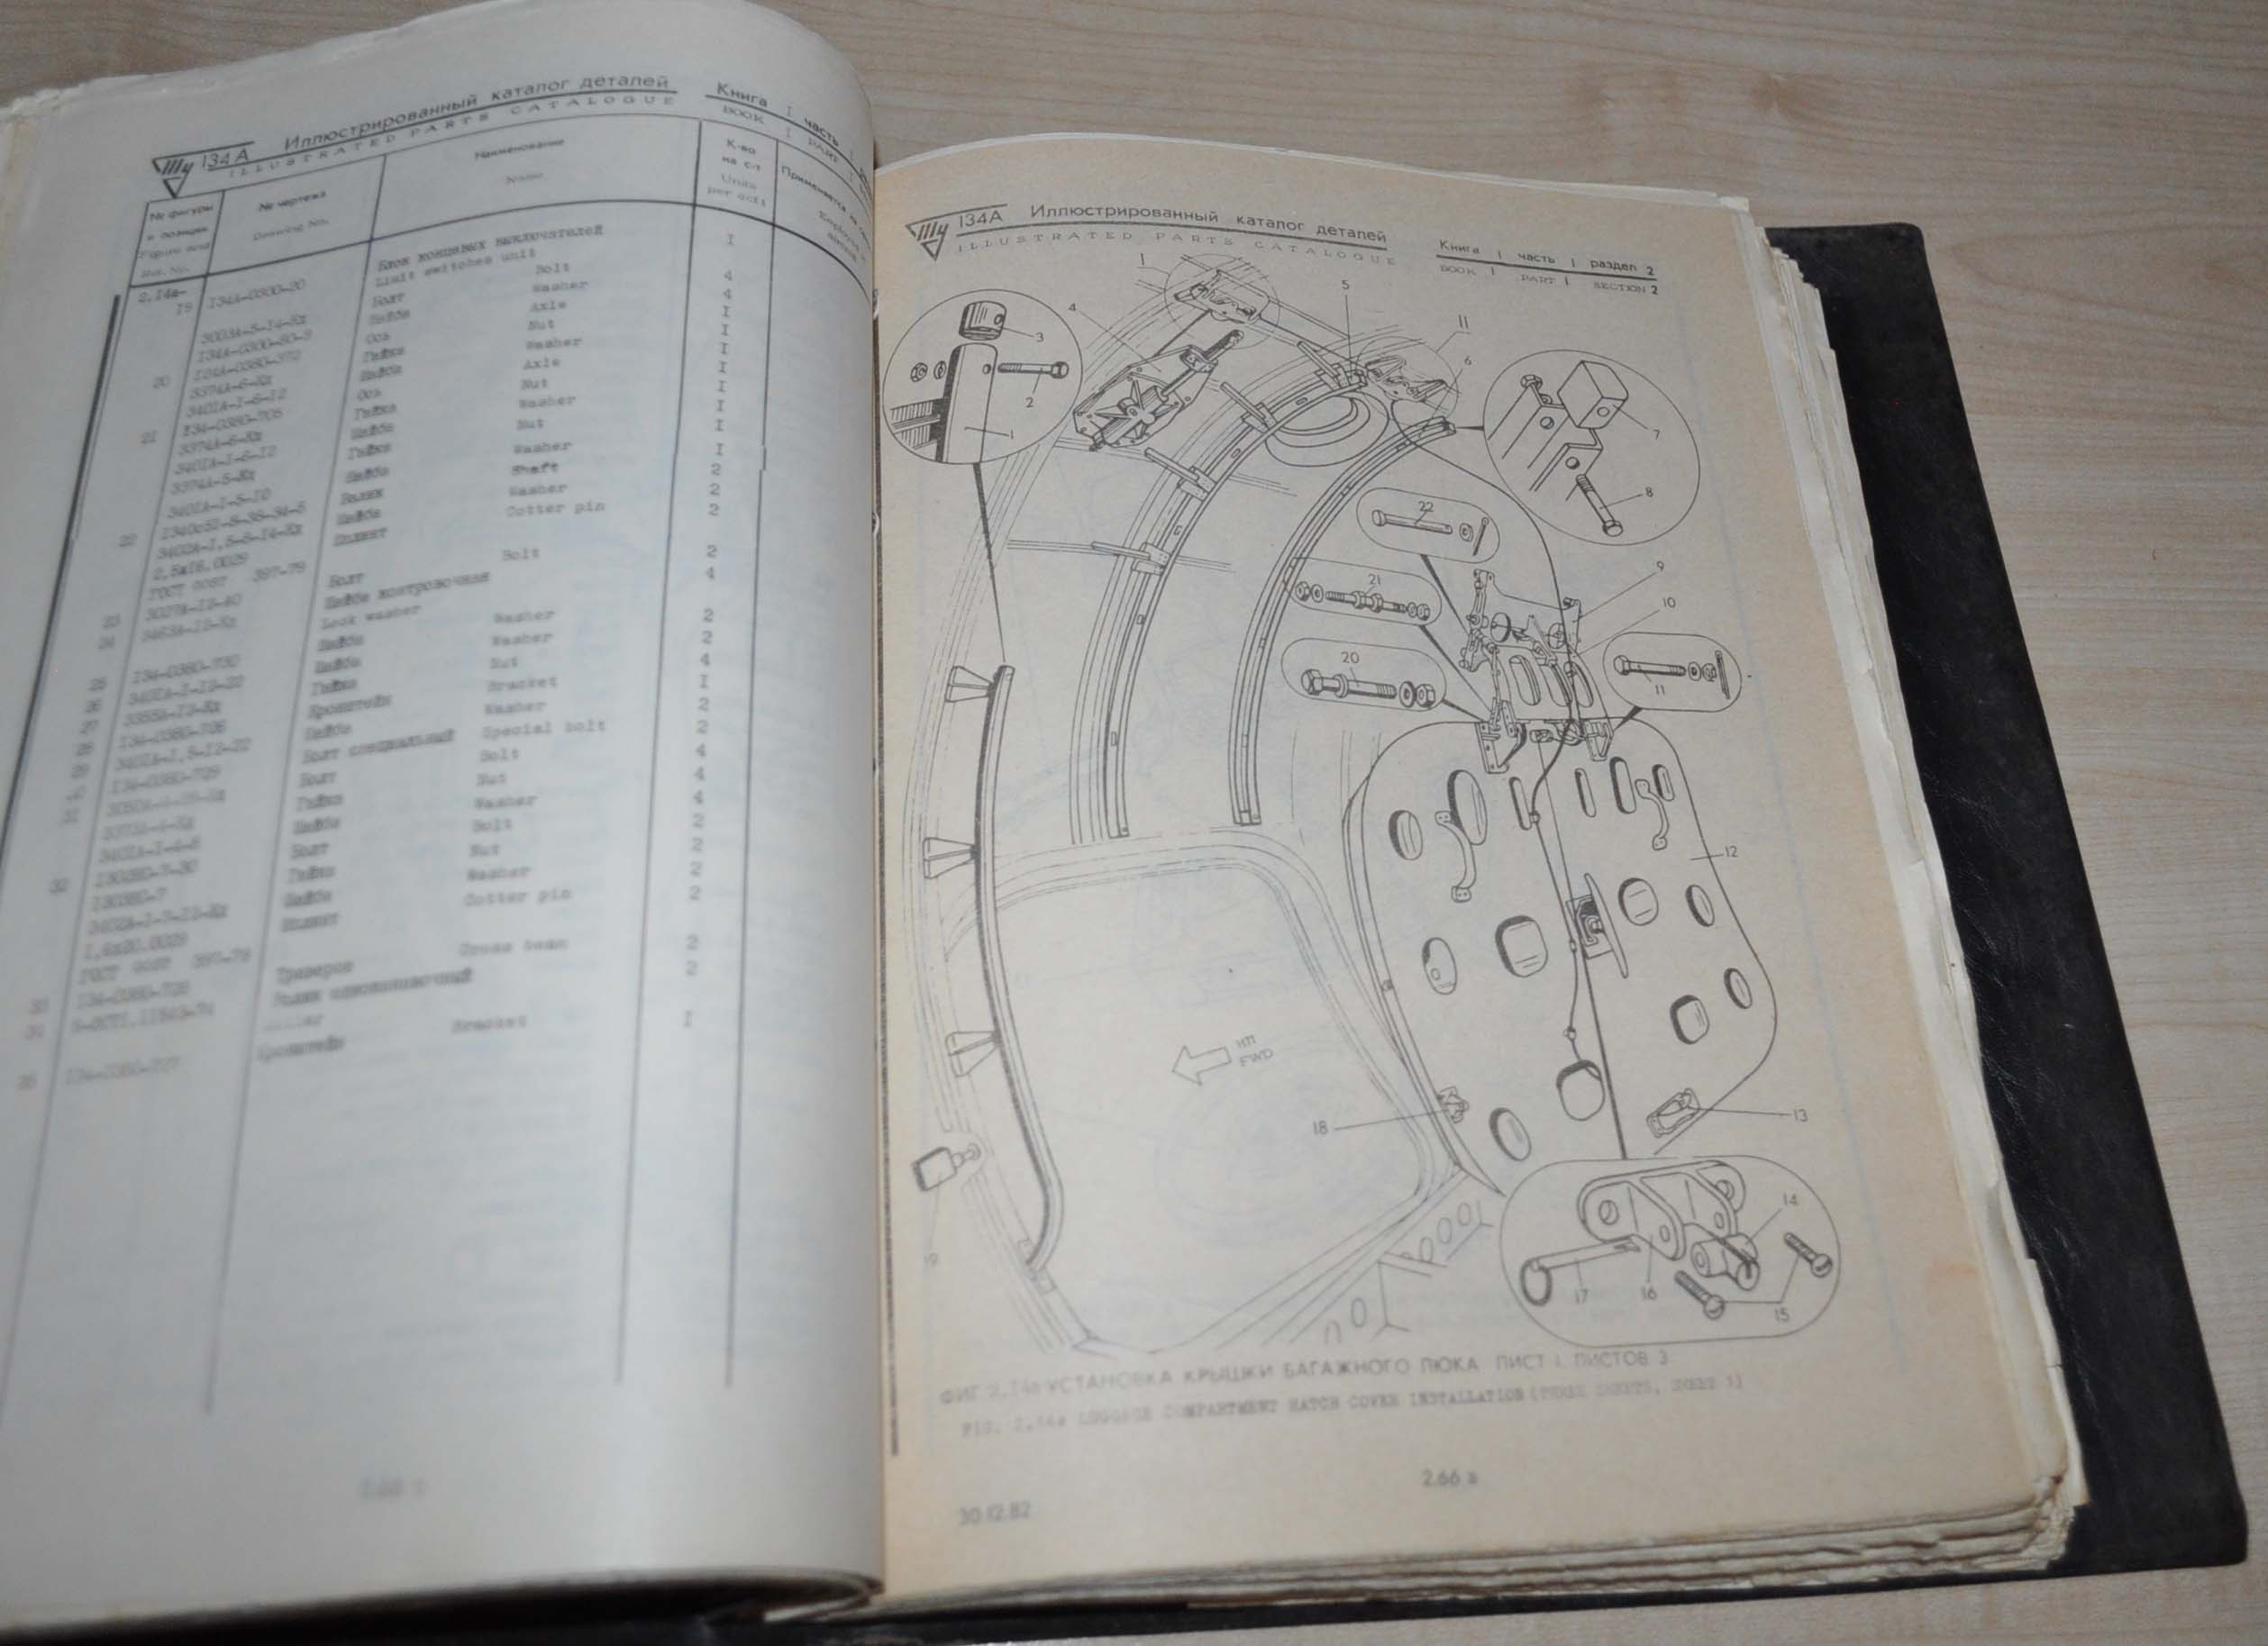 Ту 134А Иллюстрированный каталог деталей
ILLUSTRATED PARTS CATALOGUE
Книга I часть I
BOOK I PART I
№ фигуры и позиции
Figure and
№ чертежа
Drawing No.
Наименование
Name
К-во на с-т
Units per acft
Применяется на
2.14а-
19 134А-0300-20 Блок концевых выключателей I
Limit switches unit
3003А-5-14-Кд Болт Bolt 4
Шайба Washer 4
20 Ось Axle I
3374А-6-Кд Гайка Nut I
3401А-1-6-12 Шайба Washer I
21 134-0360-705 Ось Axle I
3374А-6-Кд Гайка Nut I
3401А-1-6-12 Шайба Washer I
3374А-5-Кд Гайка Nut I
3401А-1-5-10 Шайба Washer I
22 Валик Shaft 2
3402А-1,5-8-14-Кд Шайба Washer 2
2,5х16.0029 Шплинт Cotter pin 2
ГОСТ 397-79
23 3027А-12-40 Болт Bolt 2
24 3463А-12-Кд Шайба контровочная 4
Lock washer
25 134-0360-730 Шайба Washer 2
26 3401А-1-12-22 Шайба Washer 2
27 3355А-12-Кд Гайка Nut 4
28 134-0360-706 Кронштейн Bracket I
29 3401А-1,5-12-22 Шайба Washer 2
134-0360-729 Болт специальный Special bolt 2
Болт Bolt 4
3373А-4-Кд Гайка Nut 4
3401А-1-4-8 Шайба Washer 4
32 Болт Bolt 2
Гайка Nut 2
Шайба Washer 2
Шплинт Cotter pin 2
ГОСТ 397-79
33 134-0360-728 Траверса Cross beam 2
34 2
35 134-0360-727 Кронштейн Bracket I
Ту 134А Иллюстрированный каталог деталей
ILLUSTRATED PARTS CATALOGUE
Книга I часть I раздел 2
BOOK I PART I SECTION 2
I
4
3
2
1
5
II
6
7
8
22
21
20
9
10
11
12
НП
FWD
18
13
19
14
15
16
17
ФИГ 2.14а УСТАНОВКА КРЫШКИ БАГАЖНОГО ЛЮКА ЛИСТ 1 ЛИСТОВ 3
FIG. 2.14a LUGGAGE COMPARTMENT HATCH COVER INSTALLATION (THREE SHEETS, SHEET 1)
2.66 а
30.12.82